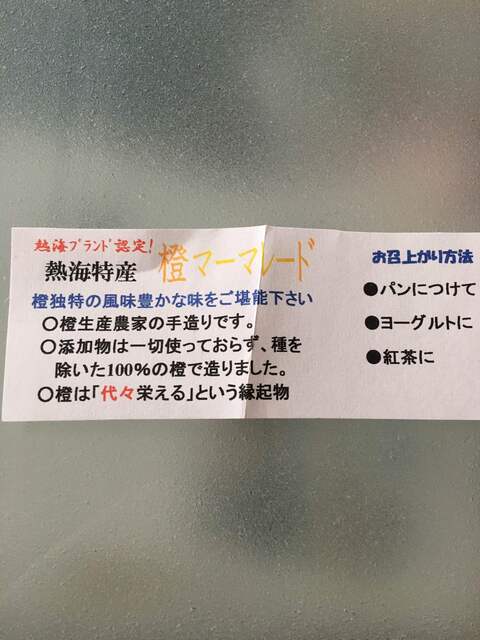 熱海ブランド認定!
熱海特産 橙マーマレード
橙独特の風味豊かな味をご堪能下さい
〇橙生産農家の手造りです。
〇添加物は一切使っておらず、種を
除いた100%の橙で造りました。
〇橙は「代々栄える」という縁起物
お召上がり方法
●パンにつけて
●ヨーグルトに
●紅茶に